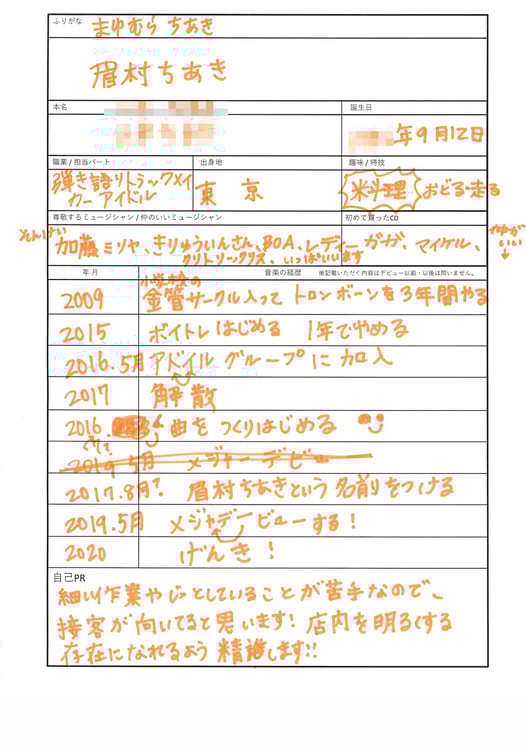 ふりがな まゆむら ちあき
眉村ちあき
本名
誕生日
年9月12日
職業 / 担当パート
弾き語りトラックメイカーアイドル
出身地
東 京
趣味 / 特技
料理 おどる 走る
尊敬するミュージシャン / 仲のいいミュージシャン
初めて買ったCD
そんけい
加藤ミリヤ、きりゅういんさん、BOA、レディーガガ、マイケル、
いっぱいいます
仲がいい↓
年 月
音楽の経歴 後記載いただく内容はデビュー以前・以後は問いません。
2009 小学校の金管サークル入って トロンボーンを3年間やる
2015 ボイトレ はじめる 1年でやめる
2016.5月 アドイル グループに加入
2017 解散
2016 曲を つくりはじめる
2019 5月 メジャーデビュー
2017.8月? 眉村ちあきという名前をつける
2019.5月 メジャデービューする!
2020 げんき!
自己PR
細い作業やじっとしていることが苦手なので、
接客が向いてると思います! 店内を明るくする
存在になれるよう 精進します!!